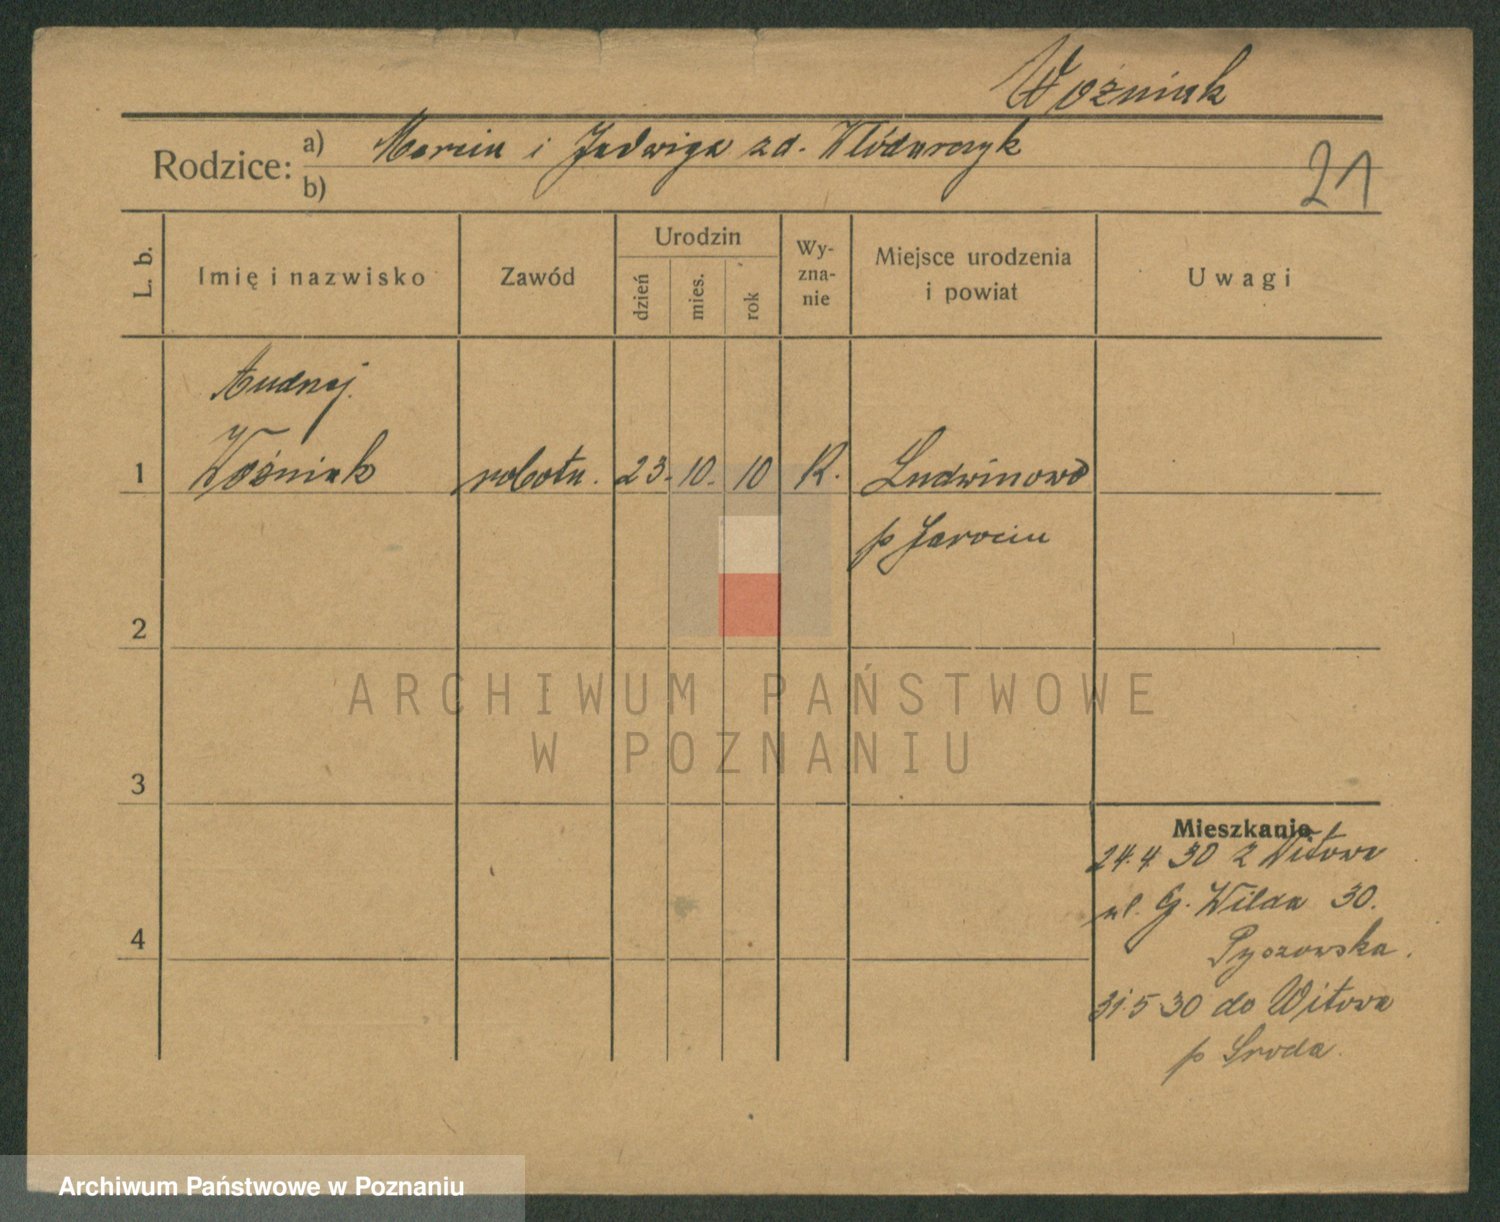 Woźniak
Rodzice: a) Marcin i Jadwiga zd. Włódarczyk
b)
21
L. b.
Imię i nazwisko
Zawód
Urodzin
dzień
mies.
rok
Wy-
zna-
nie
Miejsce urodzenia
i powiat
Uwagi
Andrzej
1 Woźniak robotn. 23. 10. 10 R. Ludwinowo
p Jarocin
2
3
4
ARCHIWUM PAŃSTWOWE
W POZNANIU
Mieszkanie
24.4 30 z Witowa
ul. G. Wilda 30.
31.5 30 do Witowa
p Sroda.
Archiwum Państwowe w Poznaniu